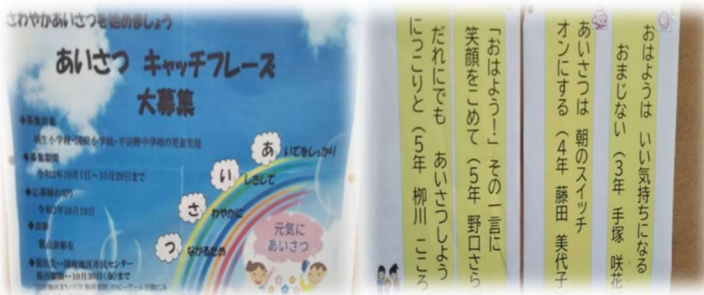 さわやかあいさつを始めましょう
あいさつ キャッチフレーズ
大募集
◆募集対象
◆募集期間
令和2年10月1日～10月29日まで
◆応募締め切り
◆表彰
あいてをしっかり
いしきして
さわやかに
つながるため
元気に
あいさつ
おはようは いい気持ちになる
おまじない （3年 手塚 咲花
あいさつは 朝のスイッチ
オンにする （4年 藤田 美代子）
「おはよう！」 その一言に
笑顔をこめて （5年 野口さら）
だれにでも あいさつしよう
にっこりと （5年 柳川 こころ